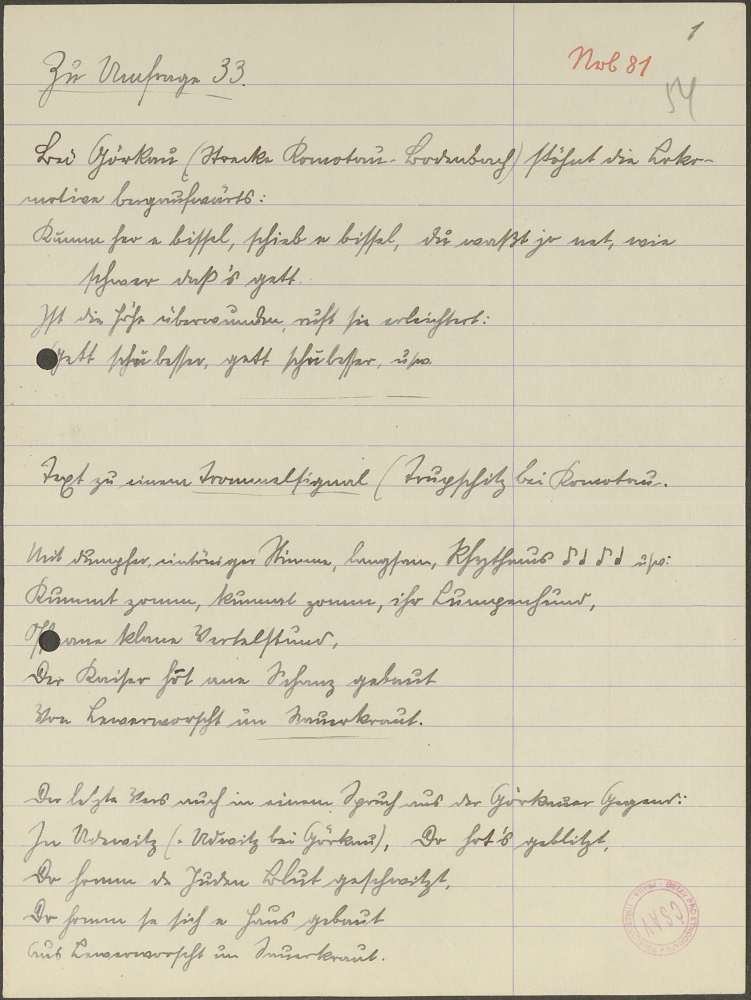 1
Zu Umfrage 33.
Nrb 81
54
Bei Görkau (Strecke Komotau-Bodenbach) stöhnt die Loko-
motive bergaufwärts:
Kumm her e bissel, schieb e bissel, du waßt jo net, wie
schwer daß's gett.
Ist die Höhe überwunden, ruft sie erleichtert:
Gett schu besser, gett schu besser, usw.
Text zu einem Trommelsignal (Trupschitz bei Komotau.
Mit dumpfer, eintöniger Stimme, langsam, Rhythmus usw:
Kummt zomm, kummt zomm, ihr Lumpenhund,
ane klane Vertelstund,
Der Kaiser hot ane Schanz gebaut
Von Lewerworscht un Sauerkraut.
Der letzte Vers auch in einem Spruch aus der Görkauer Gegend:
In Udewitz (= Udwitz bei Görkau), Do hot's geblitzt,
Do homm de Juden Blut geschwitzt,
Do homm se sich e Haus gebaut
Aus Lewerworscht un Sauerkraut.
ČSAV